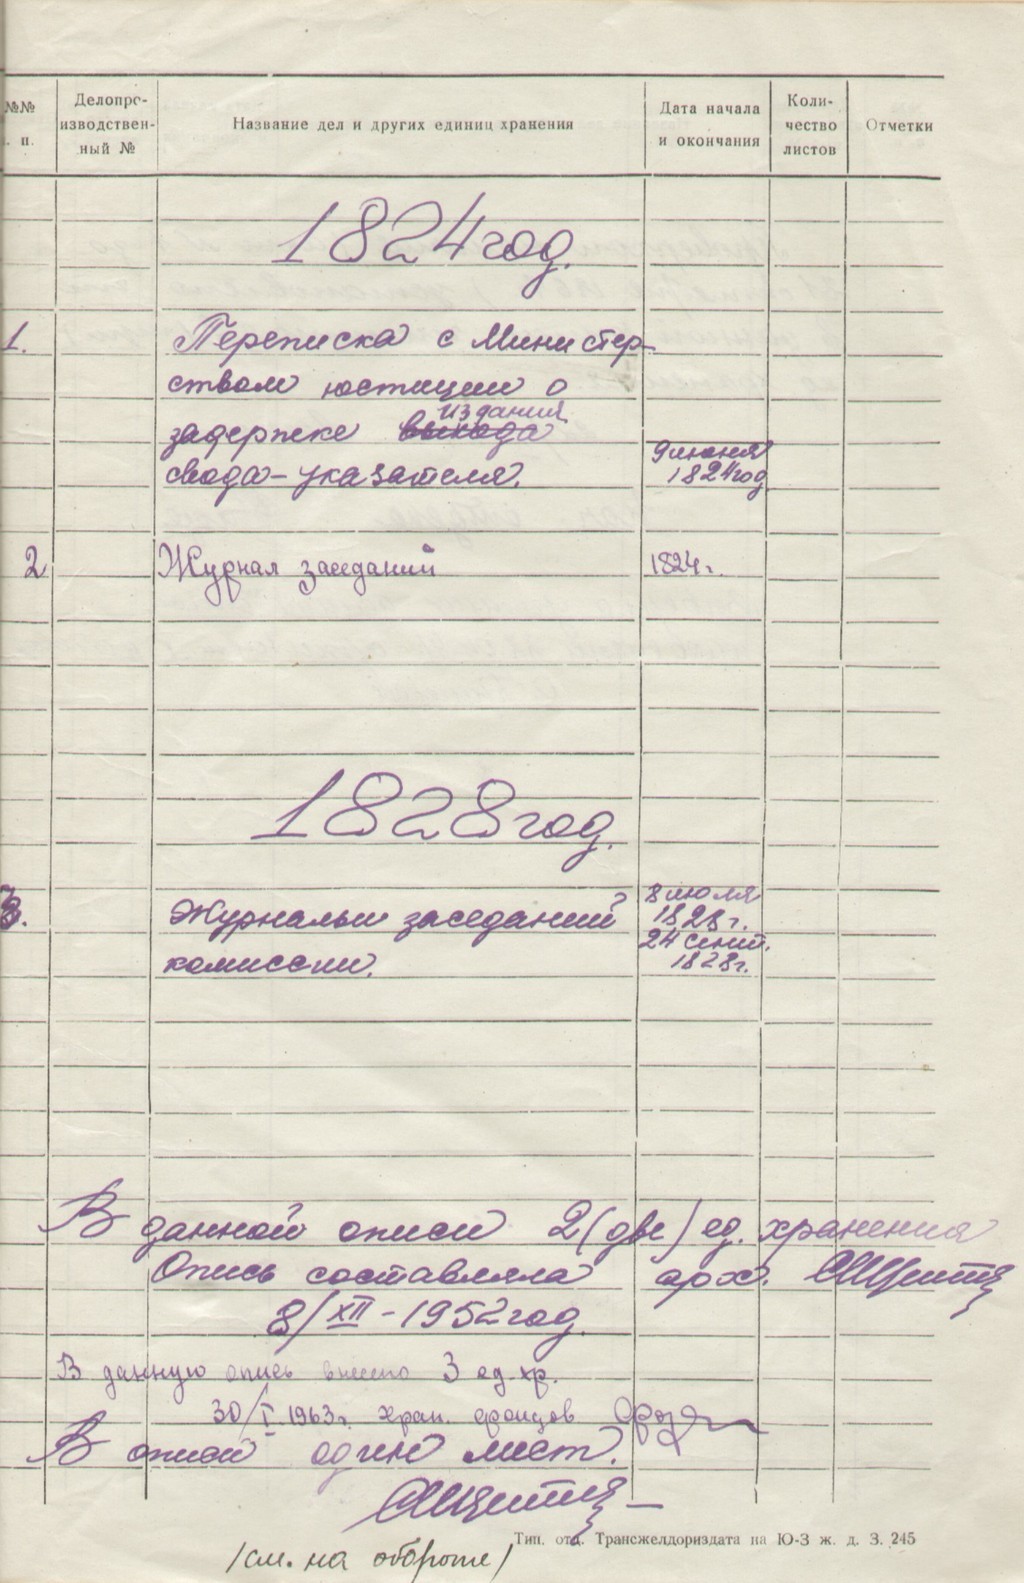 №№
. п.
Делопро-
изводствен-
ный №
Название дел и других единиц хранения
Дата начала
и окончания
Коли-
чество
листов
Отметки
1824 год.
1.
Переписка с Министер-
ством юстиции о
задержке выхода издания
свода-указателя.
9 июня
1824 год
2
Журнал заседаний
1824 г.
1828 год.
3.
Журналы заседаний
комиссии.
8 июля
1828 г.
24 сент.
1828 г.
В данной описи 2 (две) ед. хранения
Опись составляла арх.
8/XII-1952 год.
В данную опись внесено 3 ед. хр.
30/I 1963 г. Хран. фондов
В описи один лист.
Тип. отд. Трансжелдориздата на Ю-З ж. д. З. 245
/см. на обороте/